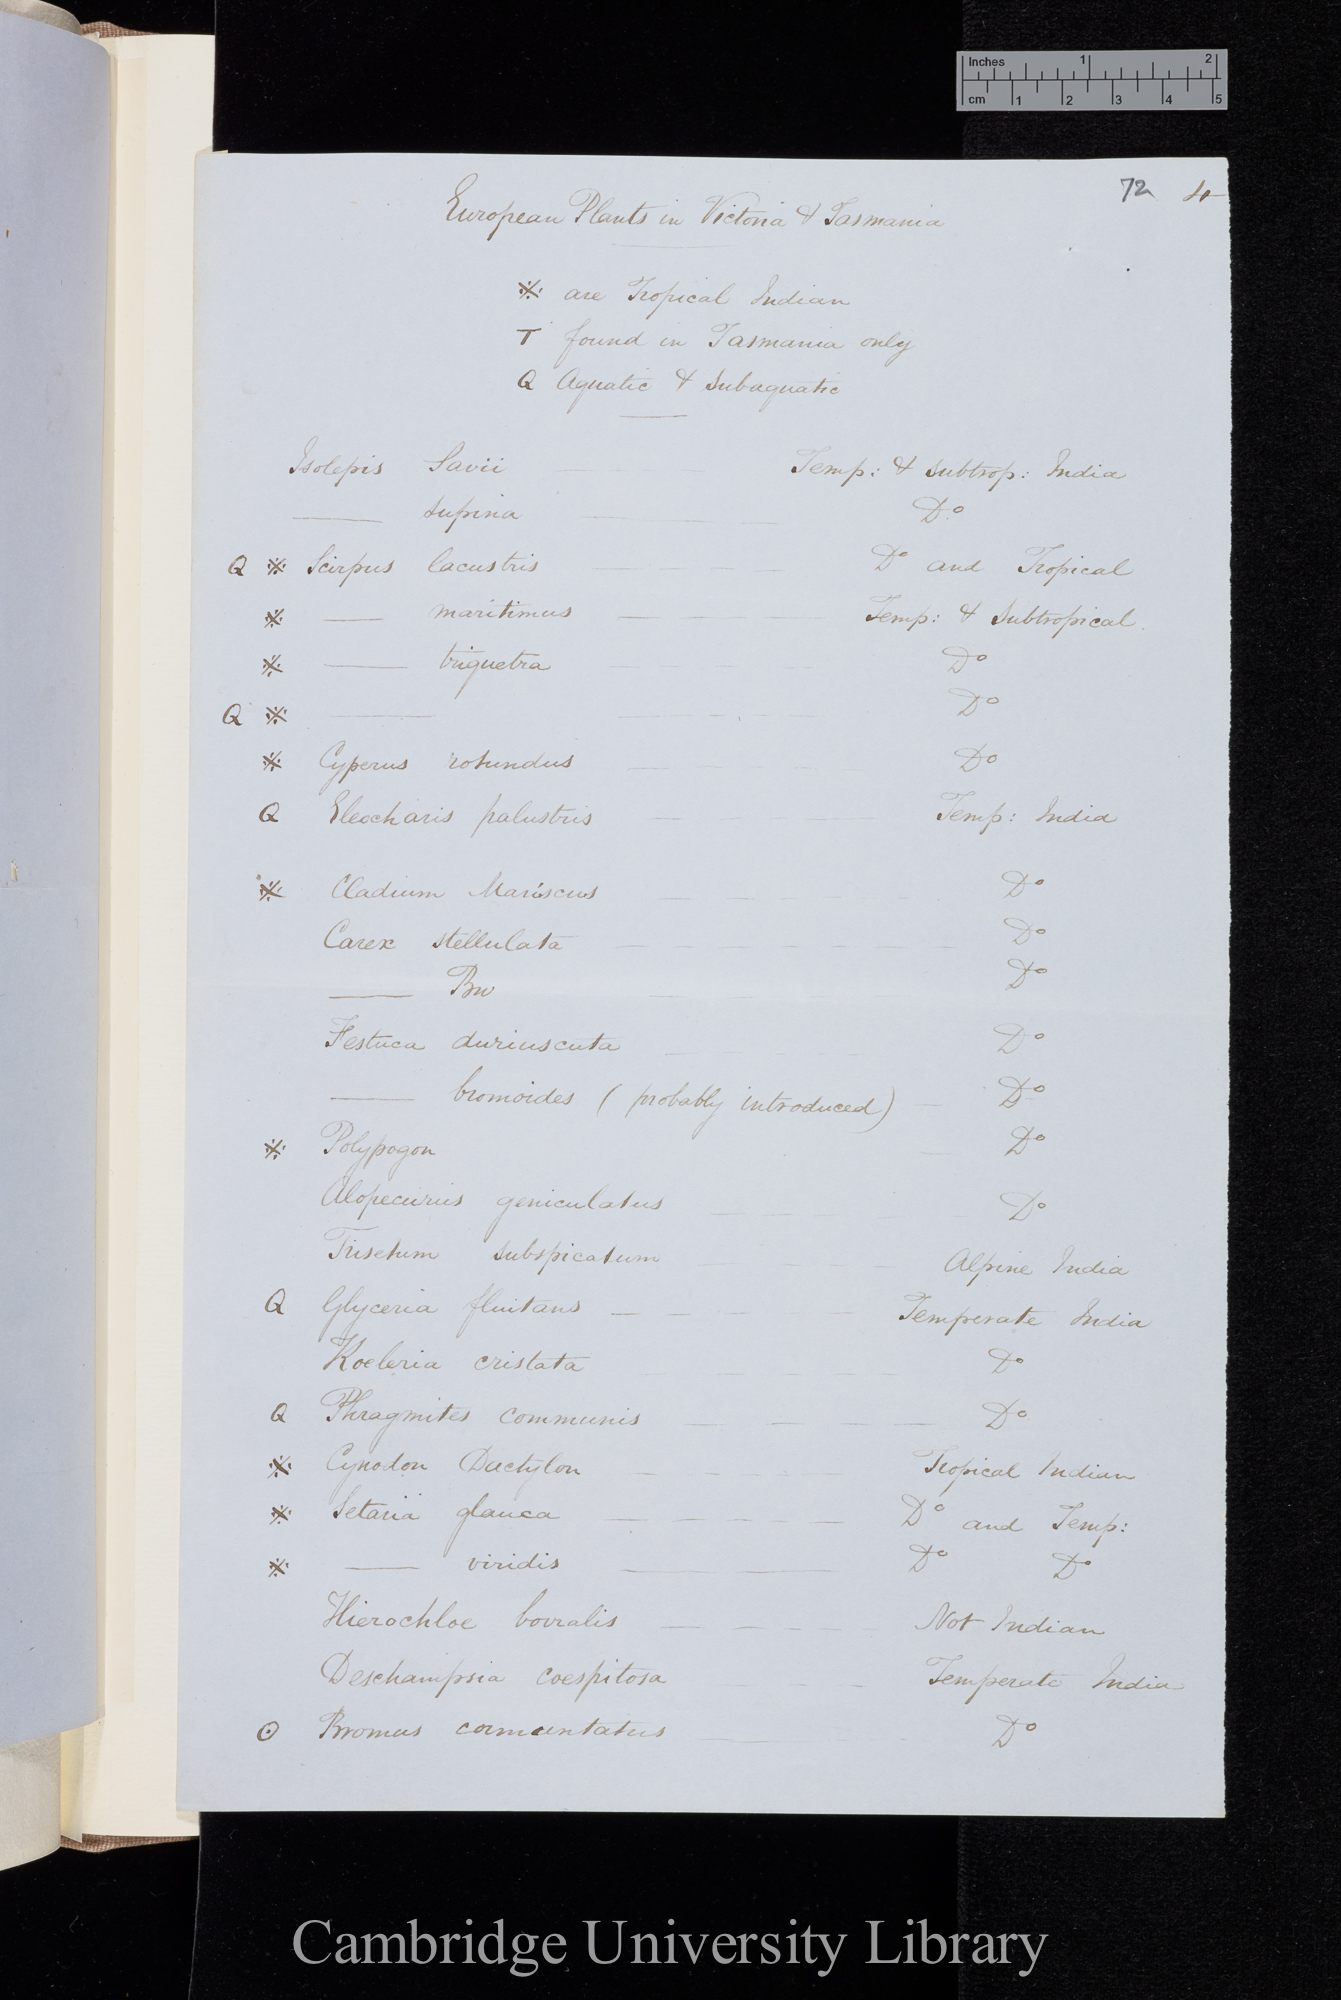 Inches 1 2
cm 1 2 3 4 5
72
European Plants in Victoria & Tasmania
※ are Tropical Indian
T found in Tasmania only
Q Aquatic & Subaquatic
Isolepis Savii Temp: & subtrop: India
—— supina Do
Q ※ Scirpus lacustris Do and Tropical
※ —— maritimus Temp: & Subtropical.
※ —— triquetra Do
Q ※ —— Do
※ Cyperus rotundus Do
Q Eleocharis palustris Temp: India
※ Cladium Mariscus Do
Carex stellulata Do
—— Do
Festuca duriuscuta Do
—— bromoides (probably introduced) Do
※ Polypogon Do
Alopecurus geniculatus Do
Trisetum subspicatum Alpine India
Q Glyceria fluitans Temperate India
Koeleria cristata Do
Q Phragmites communis Do
※ Cynodon Dactylon Tropical Indian
※ Setaria glauca Do and Temp:
※ —— viridis Do Do
Hierochloe borralis Not Indian
Deschampsia coespitosa Temperate India
⊙ Bromus commentatus Do
Cambridge University Library